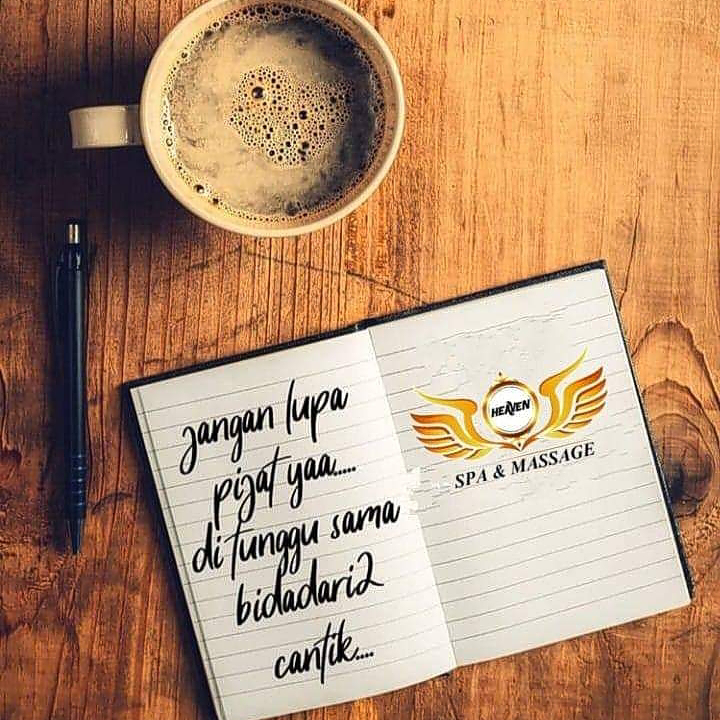 Jangan lupa
pijat yaa.....
di tunggu sama
bidadari2
cantik....
HEAVEN
SPA & MASSAGE